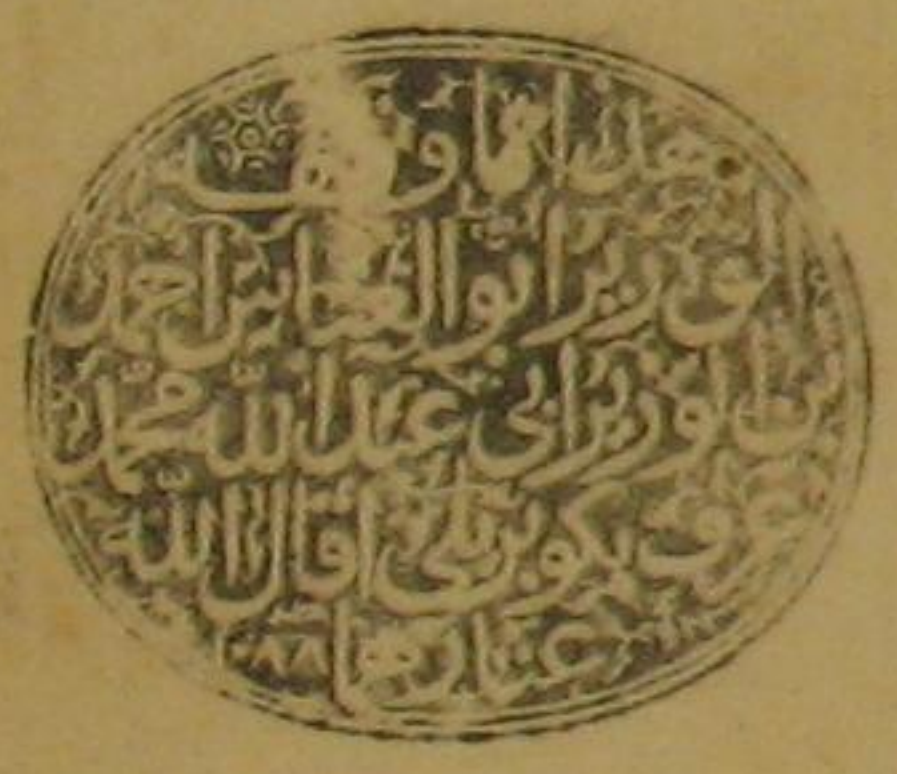 هذا مما وقف
الوزير ابو العباس احمد
بن الوزير ابي عبد الله محمد
عرف بكوبريلى اقال الله
عثارهما ١٠٨٨